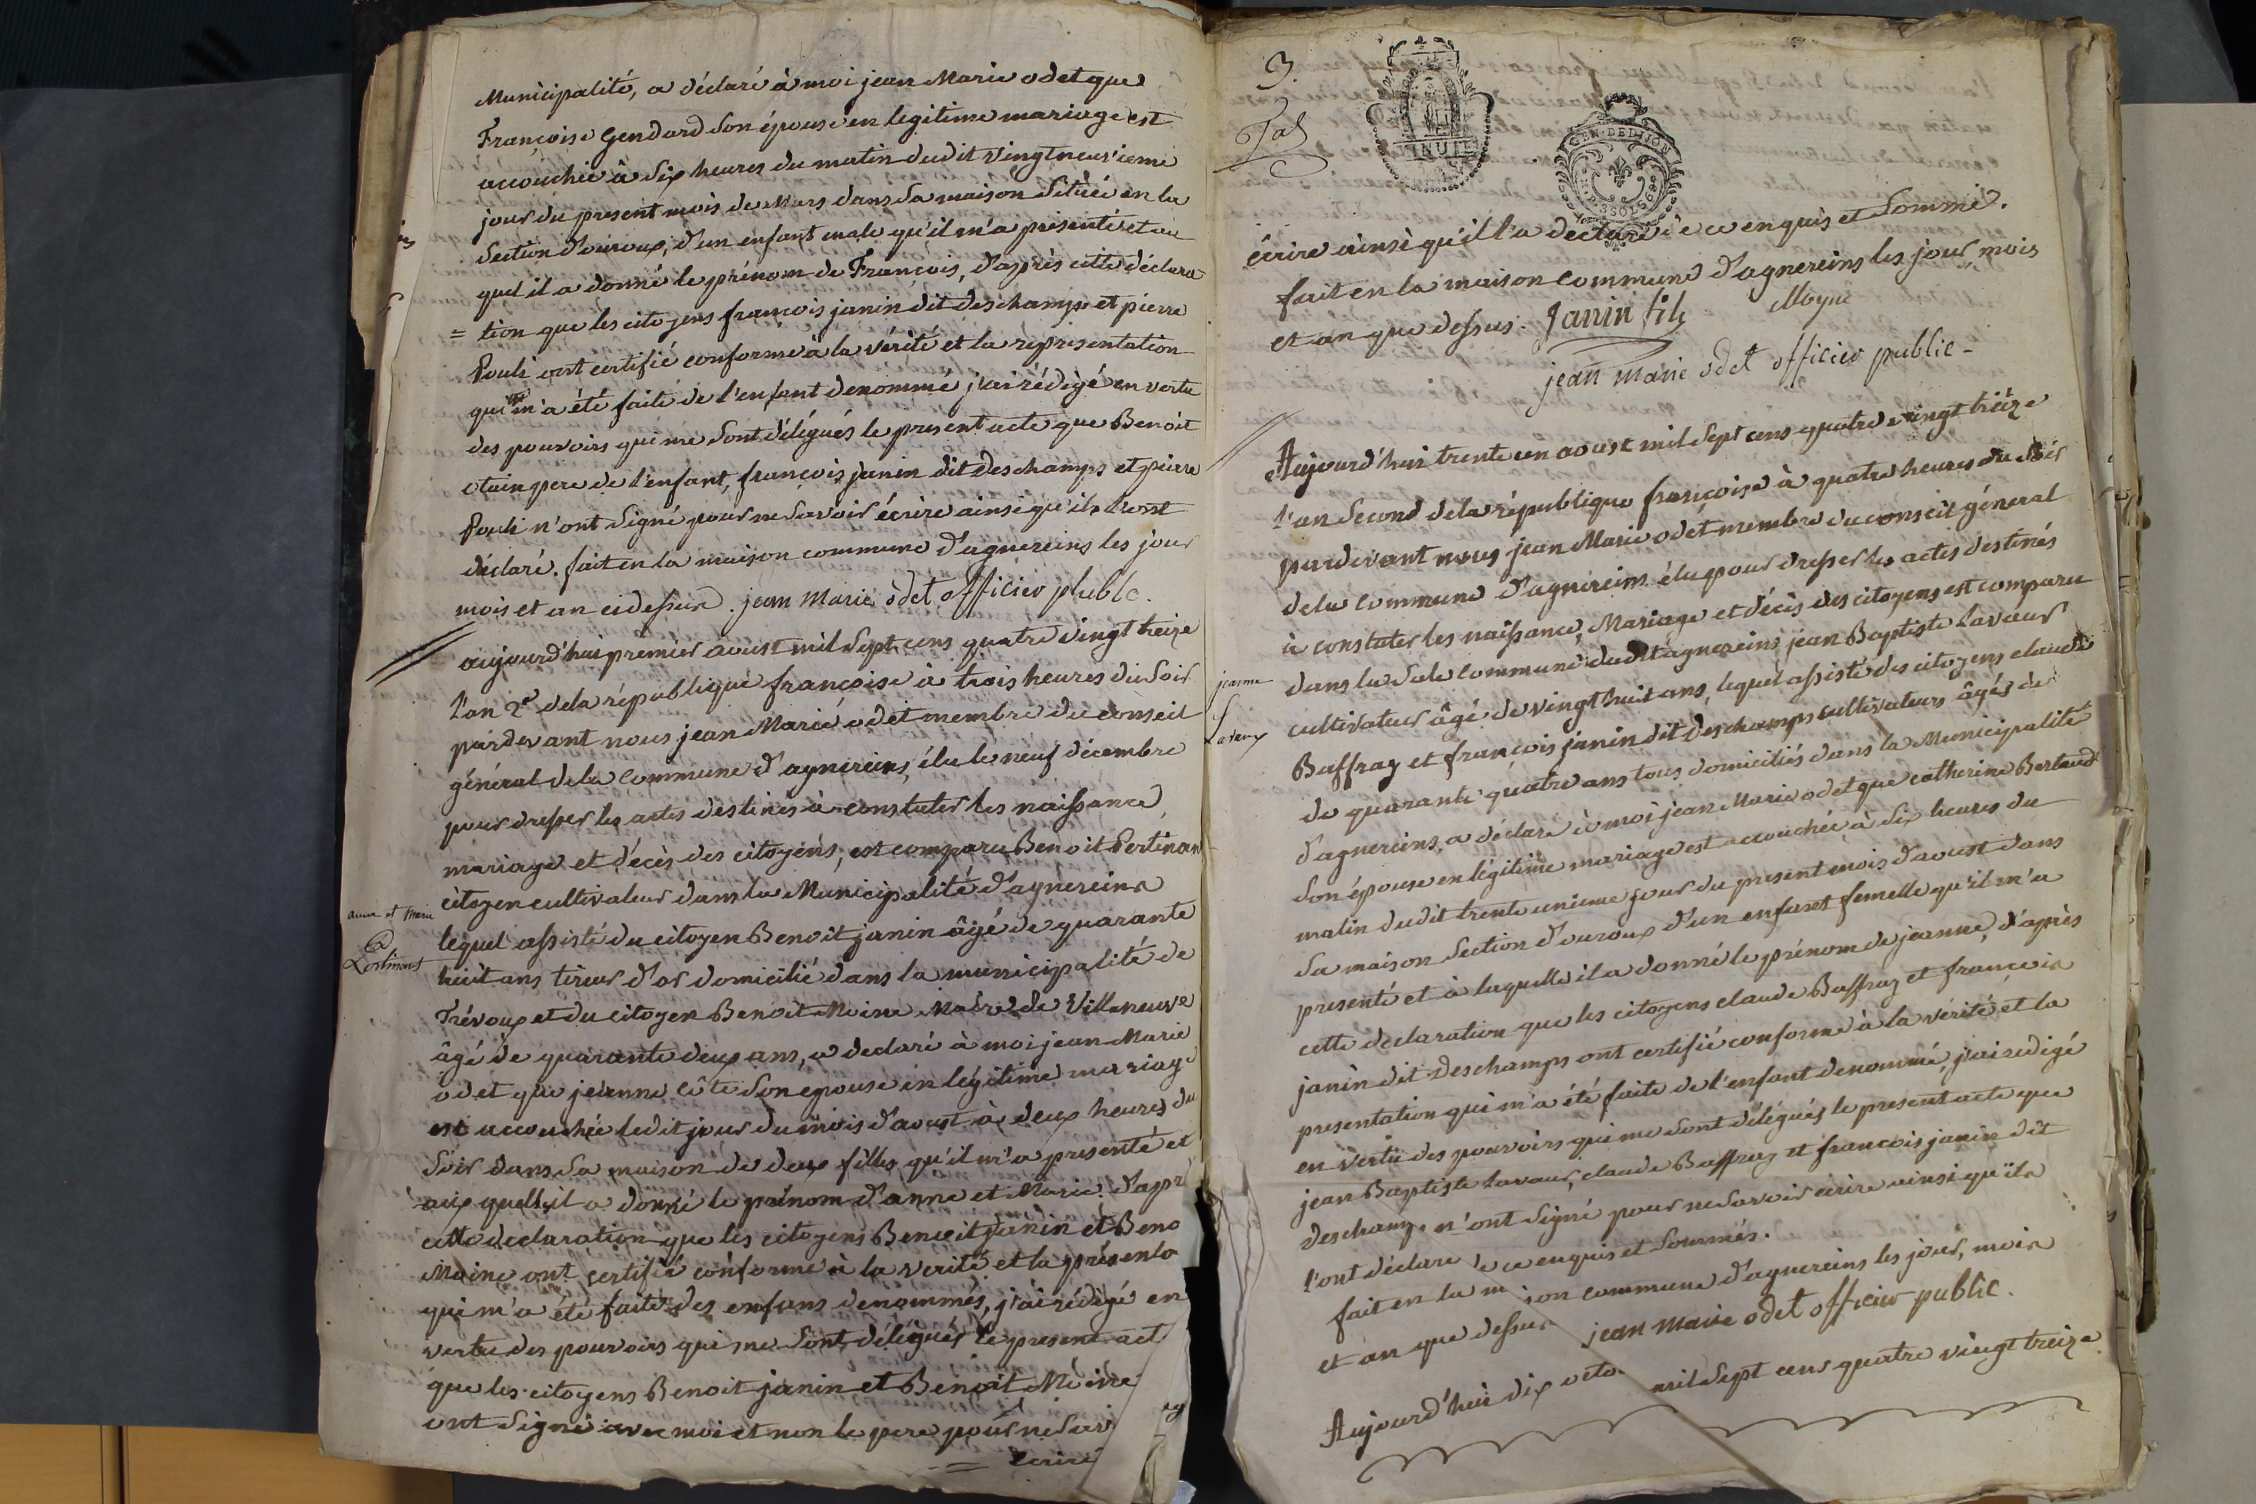 Municipalité, a déclaré à moi jean Marie odet que
Françoise Gendard son épouse en legitime mariage est
accouchée à six heures du matin dudit vingt neuvieme
jour du present mois de Mars dans sa maison située en la
section d'ouroux, d'un enfant male qu'il m'a présenté et au
quel il a donné le prénom de François, d'après cette déclara
= tion que les citoyens françois janin dit deschamps et pierre
ont certifié conforme à la vérité et la réprésentation
qui m'a été faite de l'enfant dénommé j'ai rédigé en vertu
des pouvoirs qui me sont délégués le present acte que Benoit
pere de l'enfant, françois janin dit deschamps et pierre
n'ont signé pour ne savoir écrire ainsi qu'ils l'ont
déclaré. fait en la maison commune d'agnereins les jour
mois et an ci dessus. jean Marie odet officier publc.
aujourd'hui premier aoust mil sept cens quatre vingt treize
l'an 2e de la république françoise à trois heures du soir
pardevant nous jean Marie odet membre du conseil
général de la commune d'agnereins, élu le neuf décembre
pour dresser les actes destinés à constater les naissance,
mariage et décès des citoyens, est comparu Benoit Pertinan
citoyen cultivateur dans la Municipalité d'agnereins
anne et marie
Pertinant
lequel assisté du citoyen Benoit janin âgé de quarante
huit ans tireur d'or domicilié dans la municipalité de
Trévoux et du citoyen Benoit Moine Maire de Villeneuve
âgé de quarante deux ans, a declaré à moi jean Marie
odet que jeanne Côte son epouse en légitime mariage
est accouchée ledit jour du mois d'aoust à deux heures du
soir dans sa maison de deux filles qu'il m'a presenté et
aux quelles il a donné le prénom d'anne et Marie. d'apr
cette declaration que les citoyens Benoit Janin et Beno
Moine ont certifié conforme à la verité et la présenta
qui m'a été faite des enfans denommés, j'ai rédigé en
vertu des pouvoirs qui me sont délégués le present act
que les citoyens Benoit janin et Benoit Moine
ont signé avec moi et non le pere pour ne savi
= écrire
3.
INUIT
GEN·DE DIJON
écrire ainsi qu'il l'a declaré de ce enquis et sommé.
fait en la maison commune d'agnereins les jour, mois
et an que dessus. Janin fils Moyne
jean marie odet officier public -
Aujourd'hui trente un aoust mil sept cens quatre vingt treize
l'an second de la république françoise à quatre heures du soir
pardevant nous jean Marie odet membre du conseil général
de la commune d'agnereins élu pour dresser les actes destinés
à constater les naissance, Mariage et décès des citoyens est comparu
dans la sale commune dudit agnereins jean Baptiste Lavaur
jeanne
Lavaur
cultivateur âgé de vingt huit ans, lequel assisté des citoyens claude
Baffray et françois janin dit deschamps cultivateurs âgés de
de quarante quatre ans tous domiciliés dans la Municipalité
d'agnereins, a déclaré à moi jean Marie odet que catherine Bertaud
son épouse en légitime mariage est accouchée à six heures du
matin dudit trente unieme jour du present mois d'aoust dans
sa maison section d'ouroux d'un enfant femelle qu'il m'a
presenté et à laquelle il a donné le prénom de jeanne, d'après
cette declaration que les citoyens claude Baffray et françois
janin dit deschamps ont certifié conforme à la vérité, et la
presentation qui m'a été faite de l'enfant denommé, j'ai redigé
en vertu des pouvoirs qui me sont délégués le present acte que
jean Baptiste Lavaur, claude Baffray et francois janin dit
deschamps n'ont signé pour ne savoir écrire ainsi qu'ils
l'ont déclaré de ce enquis et sommés.
fait en la m ison commune d'agnereins les jour, mois
et an que dessus jean marie odet officier public.
Aujourd'hui dix octo mil sept cens quatre vingt treize